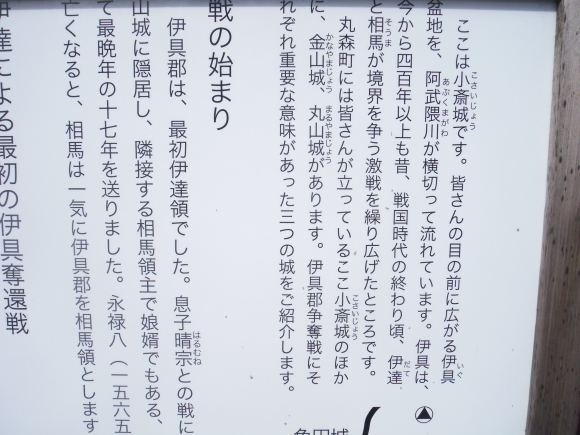 ここは小斎城です。皆さんの目の前に広がる伊具
盆地を、阿武隈川が横切って流れています。伊具は、
今から四百年以上も昔、戦国時代の終わり頃、伊達
と相馬が境界を争う激戦を繰り広げたところです。
丸森町には皆さんが立っているここ小斎城のほか
に、金山城、丸山城があります。伊具郡争奪戦にそ
れぞれ重要な意味があった三つの城をご紹介します。
戦の始まり
伊具郡は、最初伊達領でした。息子晴宗との戦に
山城に隠居し、隣接する相馬領主で娘婿でもある、
て最晩年の十七年を送りました。永禄八（一五六五
亡くなると、相馬は一気に伊具郡を相馬領とします
伊達による最初の伊具奪還戦
角田城